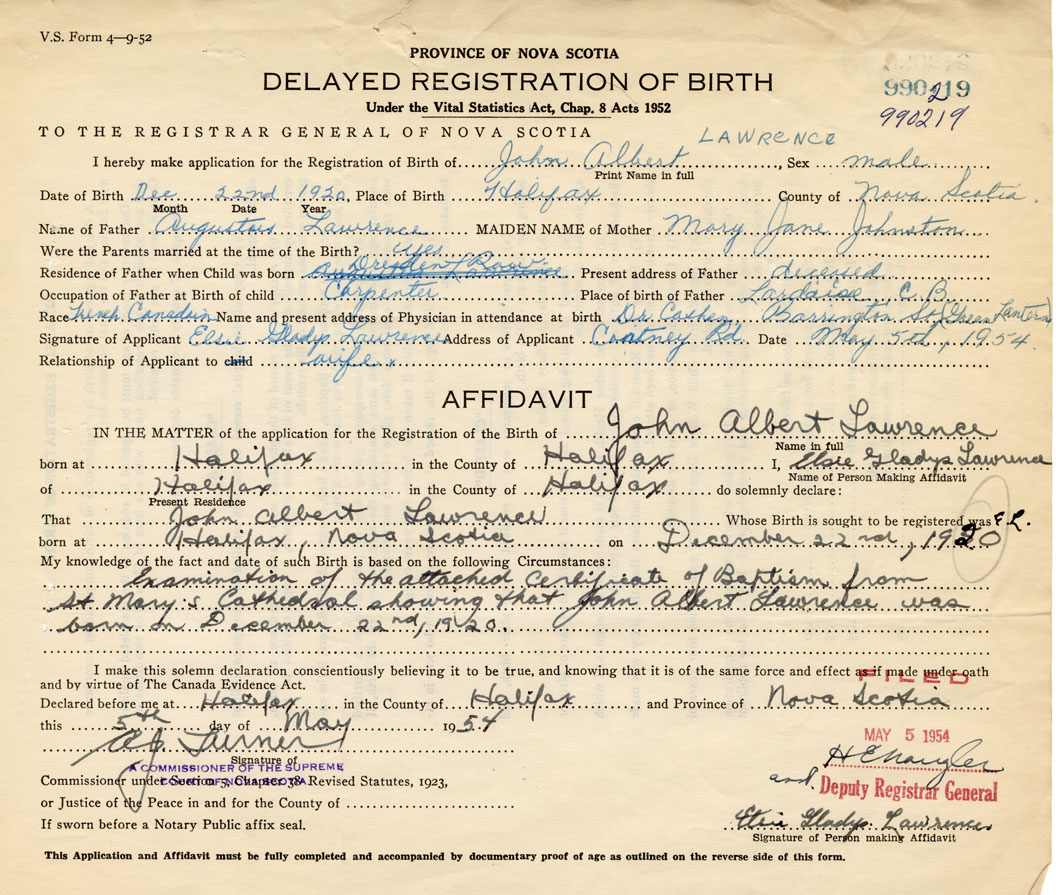 V.S. Form 4—9-52
PROVINCE OF NOVA SCOTIA
DELAYED REGISTRATION OF BIRTH
990219
Under the Vital Statistics Act, Chap. 8 Acts 1952
990219
TO THE REGISTRAR GENERAL OF NOVA SCOTIA
LAWRENCE
I hereby make application for the Registration of Birth of John Albert, Sex male
Print Name in full
Date of Birth Dec 22nd 1920, Place of Birth Halifax County of Nova Scotia
Month Date Year
Name of Father Augustois Lawrence MAIDEN NAME of Mother Mary Jane Johnston
Were the Parents married at the time of the Birth? yes
Residence of Father when Child was born Dresdent Row Present address of Father deceased
Occupation of Father at Birth of child Carpenter Place of birth of Father Lardoise, C.B.
Race French Canadain Name and present address of Physician in attendance at birth Dr. Cashen Barrington St, Green Lantern
Signature of Applicant Elsie Gladys Lawrence Address of Applicant Coatney Rd. Date May 5th, 1954.
Relationship of Applicant to child wife
AFFIDAVIT
IN THE MATTER of the application for the Registration of the Birth of John Albert Lawrence
Name in full
born at Halifax in the County of Halifax I, Elsie Gladys Lawrence
Name of Person Making Affidavit
of Halifax in the County of Halifax do solemnly declare:
Present Residence
That John Albert Lawrence Whose Birth is sought to be registered was E.L.
born at Halifax, Nova Scotia on December 22nd, 1920
My knowledge of the fact and date of such Birth is based on the following Circumstances:
Examination of the attached Certificate of Baptism from
St Mary's Cathedral showing that John Albert Lawrence was
born on December 22nd, 1920.
I make this solemn declaration conscientiously believing it to be true, and knowing that it is of the same force and effect as if made under oath
and by virtue of The Canada Evidence Act.
FILED
Declared before me at Halifax in the County of Halifax and Province of Nova Scotia
this 5th day of May 1954
MAY 5 1954
A J Turner
Signature of
A COMMISSIONER OF THE SUPREME
COURT OF NOVA SCOTIA
Commissioner under Section 5, Chapter 38 Revised Statutes, 1923,
and. Deputy Registrar General
or Justice of the Peace in and for the County of
Elsie Gladys Lawrence
If sworn before a Notary Public affix seal.
Signature of Person making Affidavit
This Application and Affidavit must be fully completed and accompanied by documentary proof of age as outlined on the reverse side of this form.